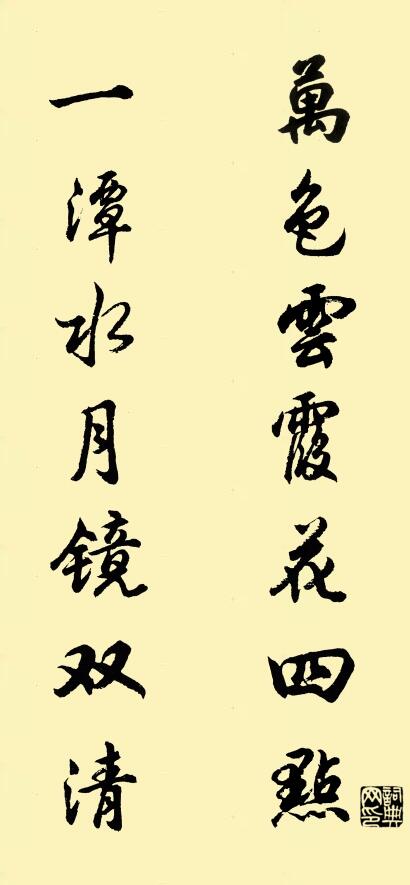 萬色雲霞花四點
一潭水月镜双清
詞典网印